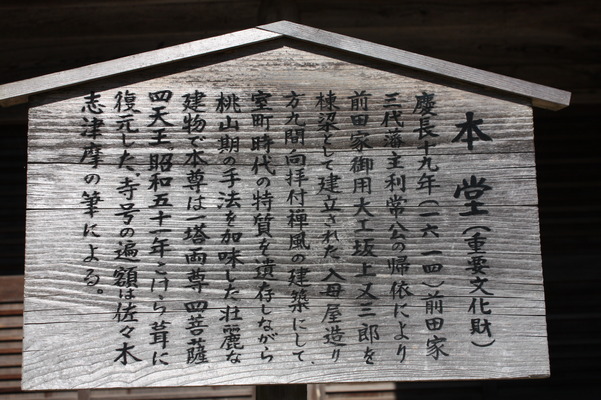 本堂（重要文化財）
慶長十九年（一六一四）前田家
三代藩主利常公の帰依により
前田家御用大工坂上又三郎を
棟梁として建立された入母屋造り
方九間向拝付禅風の建築にして
室町時代の特質を遺存しながら
桃山期の手法を加味した壮麗な
建物で本尊は一塔両尊四菩薩
四天王。昭和五十一年こけら葺に
復元した、寺号の遍額は佐々木
志津摩の筆による。